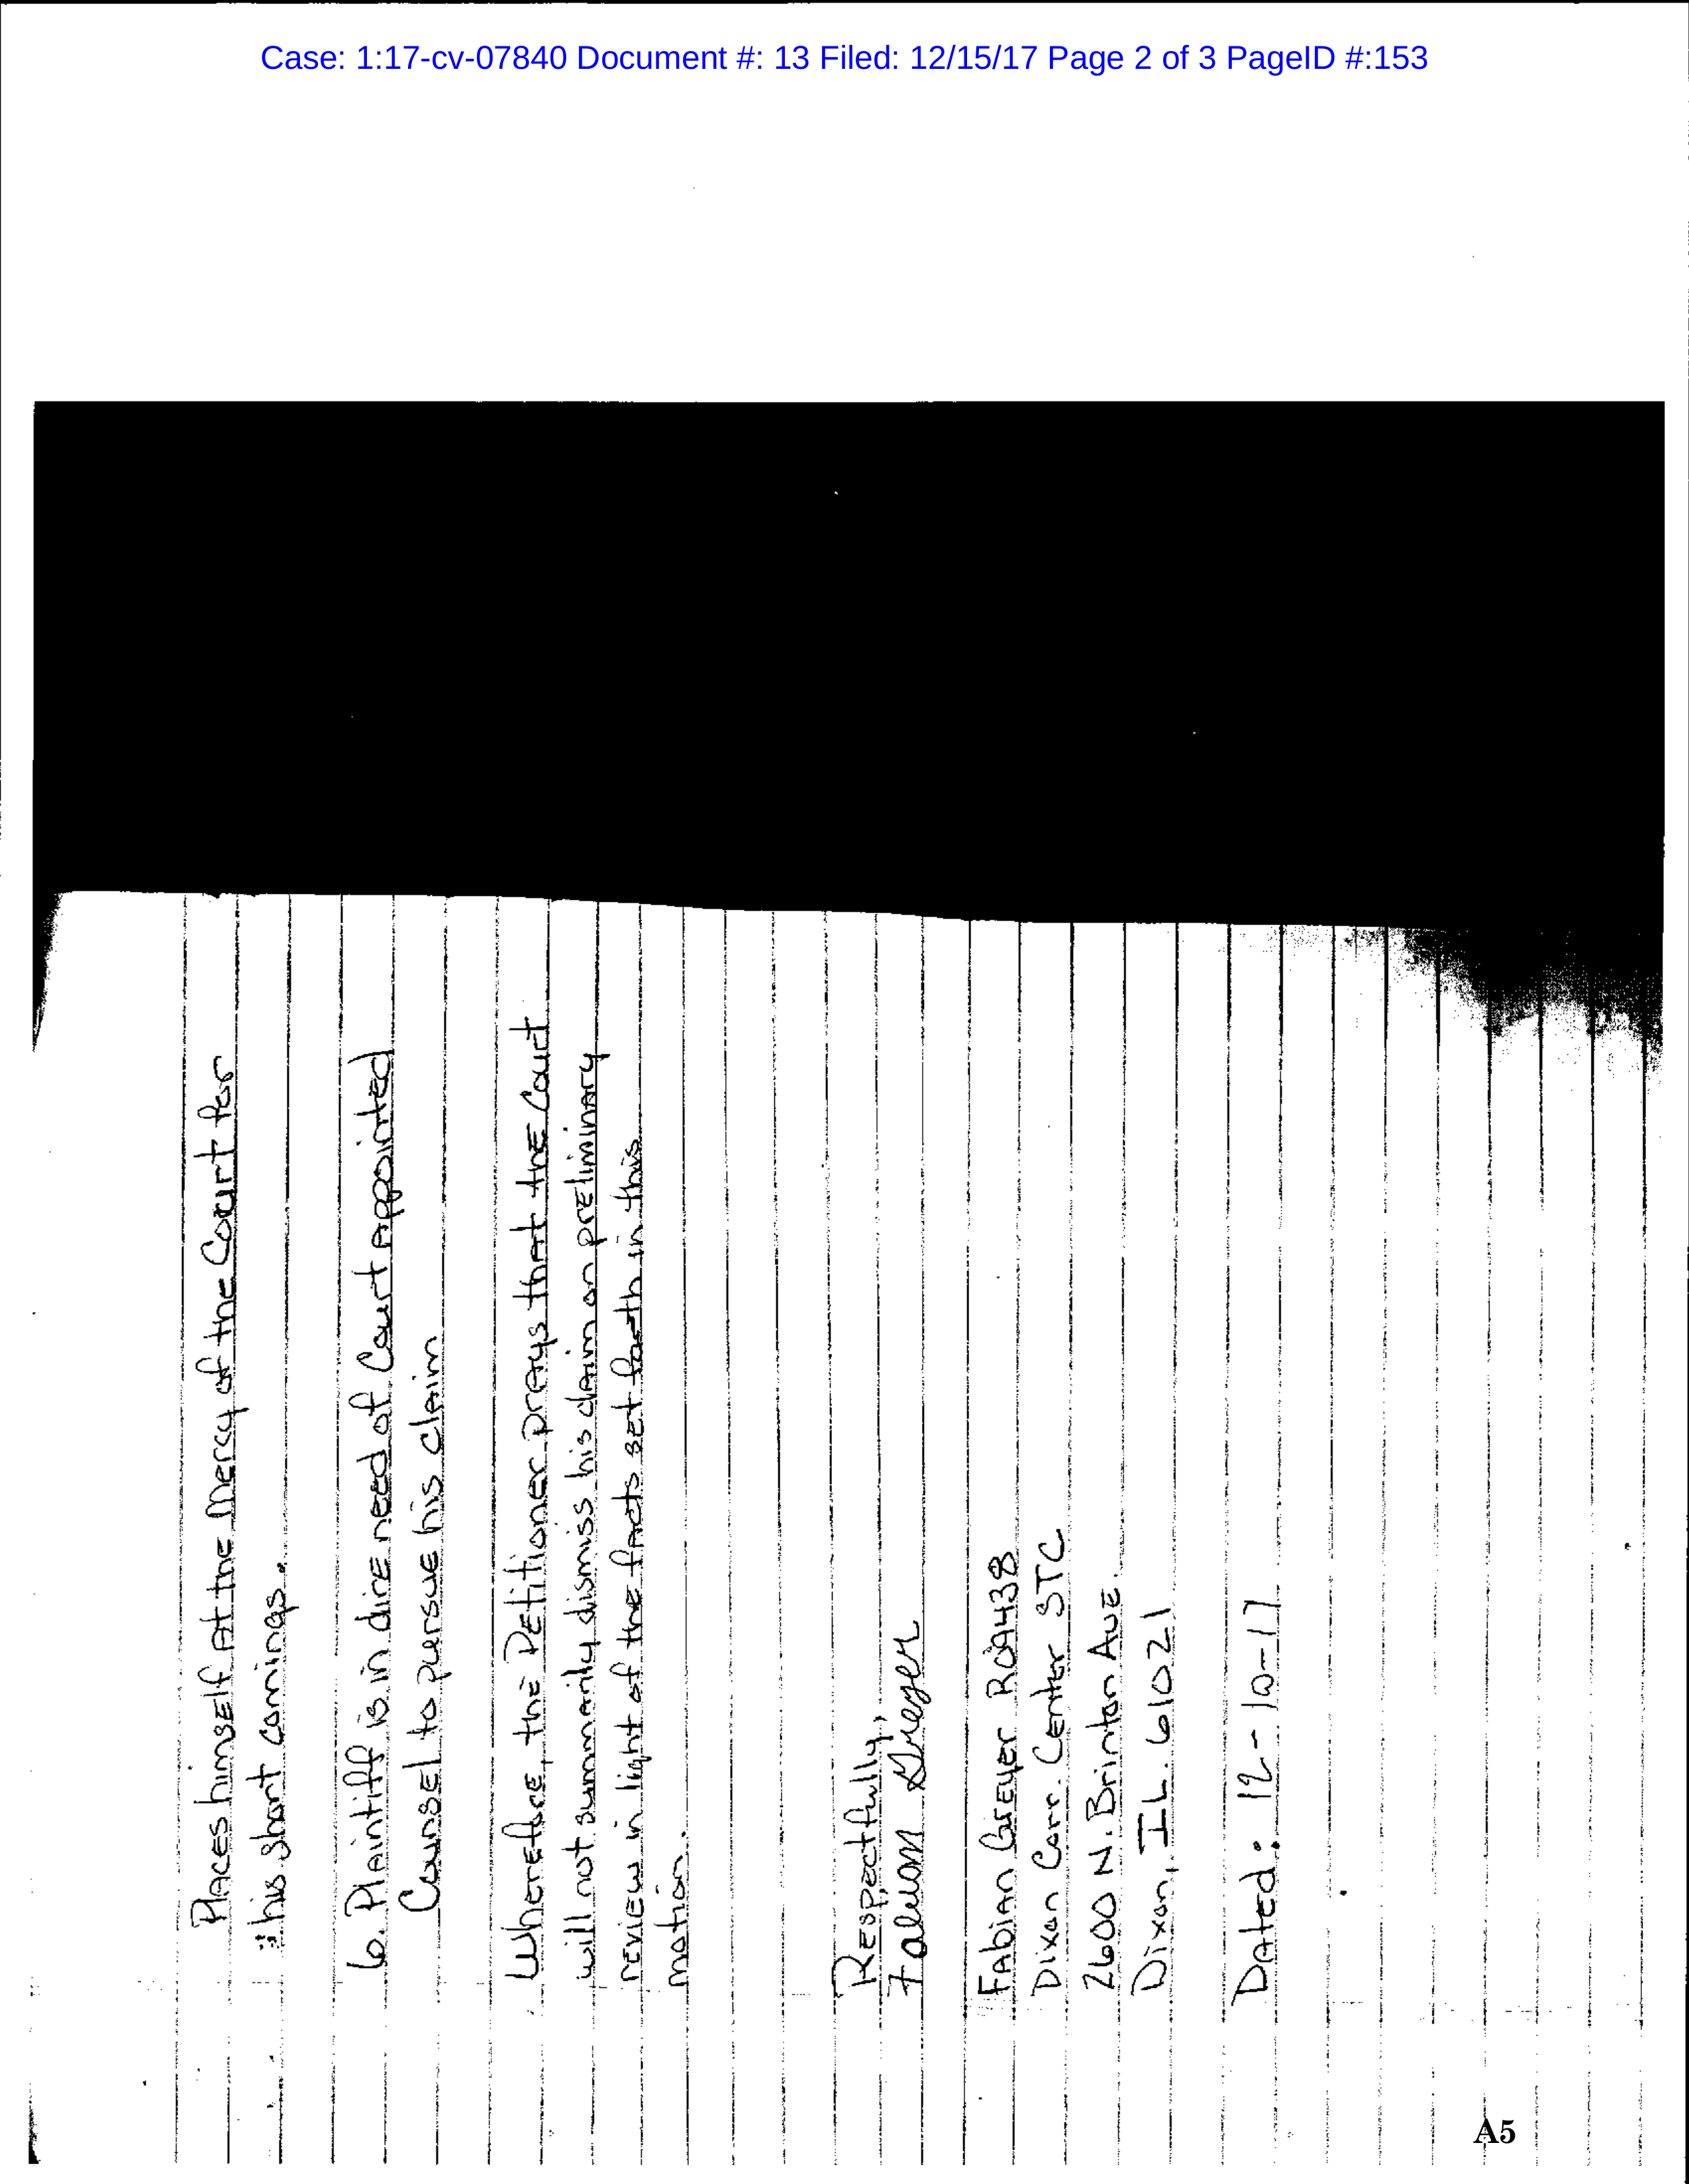 Case: 1:17-cv-07840 Document #: 13 Filed: 12/15/17 Page 2 of 3 PageID #:153
Places himself At the Mercy of the Court for
his short comings.
6. Plaintiff is in dire need of Court Appointed
Counsel to pursue his claim
Wherefore, the Petitioner prays that the Court
will not summarily dismiss his claim on preliminary
review in light of the facts set forth in this
motion.
Respectfully,
Fabian Greyer
Fabian Greyer R09438
Dixon Corr. Center STC
2600 N. Brinton Ave.
Dixon, IL. 61021
Dated: 12-10-17
A5